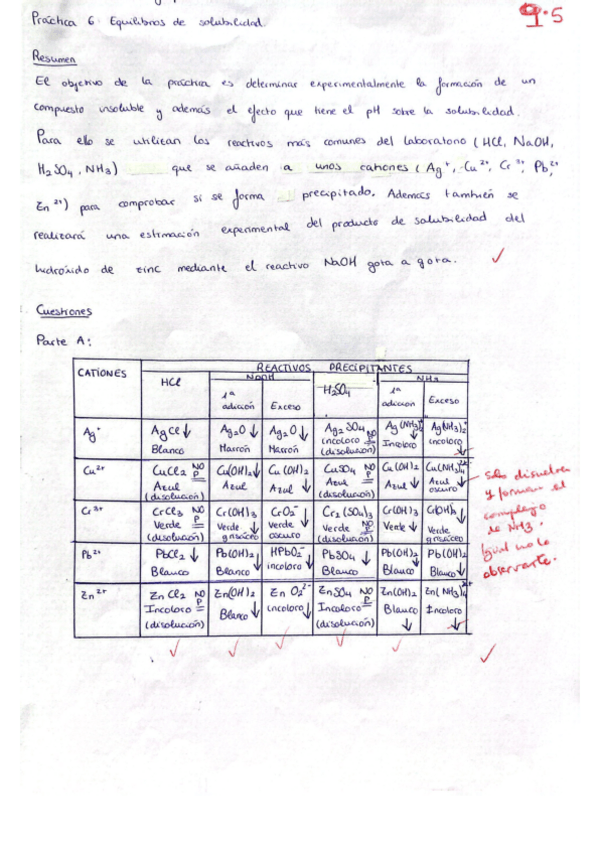 Práctica 6: Equilibrios de solubilidad.
9.5
Resumen
El objetivo de la práctica es determinar experimentalmente la formación de un
compuesto insoluble y además el efecto que tiene el pH sobre la solubilidad.
Para ello se utilizan los reactivos más comunes del laboratorio (HCl, NaOH,
H2SO4, NH3) que se añaden a unos cationes (Ag+, Cu2+, Cr3+, Pb2+,
Zn2+) para comprobar si se forma precipitado. Además también se
realizará una estimación experimental del producto de solubilidad del
hidróxido de zinc mediante el reactivo NaOH gota a gota.
Cuestiones
Parte A:
CATIONES REACTIVOS PRECIPITANTES
HCl NaOH H2SO4 NH3
1ª adición Exceso 1ª adición Exceso
Ag+ AgCl↓ Blanco Ag2O↓ Marrón Ag2O↓ Marrón Ag2SO4 NO P incoloro (disolución) Ag(NH3)2+↓ Incoloro Ag(NH3)2+ incoloro↓
Cu2+ CuCl2 NO P Azul (disolución) Cu(OH)2↓ Azul Cu(OH)2 Azul↓ CuSO4 NO P Azul (disolución) Cu(OH)2 Azul↓ Cu(NH3)42+ Azul oscuro↓
Cr3+ CrCl3 NO P Verde (disolución) Cr(OH)3 Verde grisáceo↓ CrO2- Verde oscuro↓ Cr2(SO4)3 Verde NO P (disolución) Cr(OH)3 Verde↓ Cr(OH)3 Verde grisáceo↓
Pb2+ PbCl2↓ Blanco Pb(OH)2 Blanco↓ HPbO2- incoloro↓ PbSO4↓ Blanco Pb(OH)2 Blanco↓ Pb(OH)2 Blanco↓
Zn2+ ZnCl2 NO P Incoloro (disolución) Zn(OH)2 Blanco↓ ZnO22- incoloro↓ ZnSO4 NO P Incoloro (disolución) Zn(OH)2 Blanco↓ Zn(NH3)42+ Incoloro↓
y forman el
complejo
de NH3.
Igual no lo